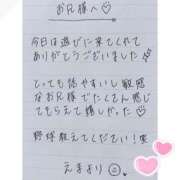 お兄様へ♡
今日は遊びに来てくれて
ありがとうございました
とっても話やすいし敏感
なお兄様でたくさん感じ
てもらえて嬉しかった♡
野球教えてください!笑
えまより☺